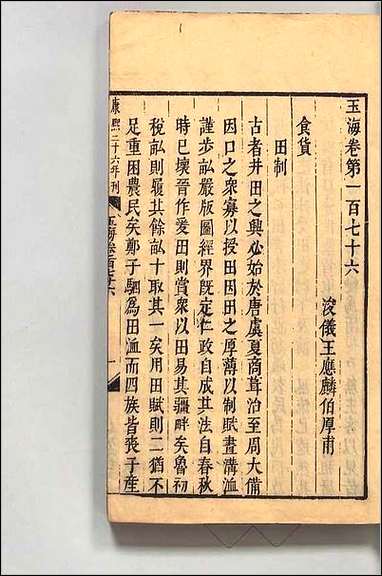 玉海卷第一百七十六
浚儀王應麟伯厚甫
食貨
田制
古者井田之興必始於唐虞夏商葺治至周大備
因口之衆寡以授田因田之厚薄以制賦晝溝洫
謹步畝嚴版圖經界既定仁政自成其法自春秋
時已壞晉作爰田則賞衆以田易其疆畔矣魯初
稅畝則履其餘畝十取其一矣用田賦則二猶不
足重困農民矣鄭子駟為田洫而四族皆喪子產
康熙二十六年刊
玉海卷一百七十六